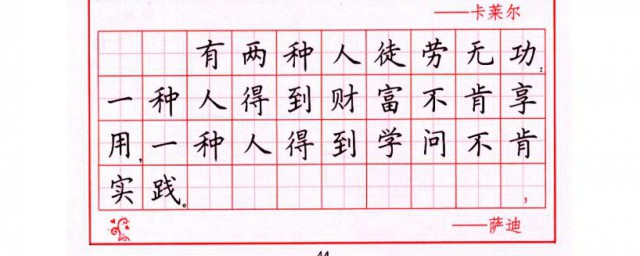 ——卡莱尔
有两种人徒劳无功:
一种人得到财富不肯享
用,一种人得到学问不肯
实践。
——萨迪